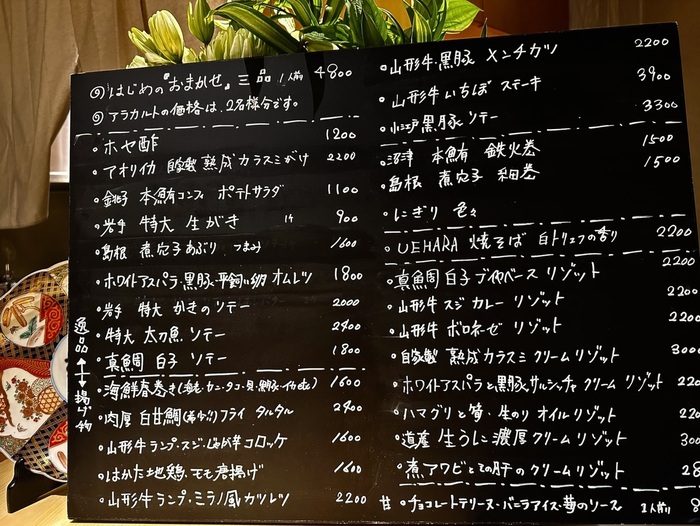 ◎はじめの"おまかせ"三品 1人前 4800
◎アラカルトの価格は、2名様分です。
・ホヤ酢 1200
・アオリイカ 自家製 熟成カラスミがけ 2200
・銚子 本鮪コンフィ ポテトサラダ 1100
・岩手 特大 生がき 1ヶ 900
・島根 煮穴子あぶり つまみ 1600
・ホワイトアスパラ・黒豚・平飼い卵 オムレツ 1800
・岩手 特大 かきのソテー 2000
・特大 太刀魚 ソテー 2400
・真鯛 白子 ソテー 1800
逸品 ↔ 揚げ物
・海鮮春巻き 1600
・肉厚 白甘鯛 フライ タルタル 2400
・山形牛ランプ・スジ・じゃが芋コロッケ 1600
・はかた地鶏 モモ唐揚げ 1600
・山形牛ランプ・ミラノ風カツレツ 2200
・山形牛・黒豚 メンチカツ 2200
・山形牛いちぼ ステーキ 3900
・小江戸黒豚 ソテー 3300
・沼津 本鮪 鉄火巻 1500
・島根 煮穴子 細巻 1500
・にぎり 色々
・UEHARA 焼そば 白トリュフの香り 2200
・真鯛白子 ブイヤベース リゾット 2200
・山形牛 スジ カレー リゾット 2200
・山形牛 ボロネーゼ リゾット 2200
・自家製 熟成カラスミ クリームリゾット 3000
・ホワイトアスパラと黒豚サルシッチャ クリームリゾット 22
・ハマグリと筍・生のり オイルリゾット 220
・道産 生うに 濃厚クリームリゾット 300
・煮アワビとその肝のクリームリゾット 28
甘 ・チョコレートテリーヌ・バニラアイス・苺のソース 2人前 8